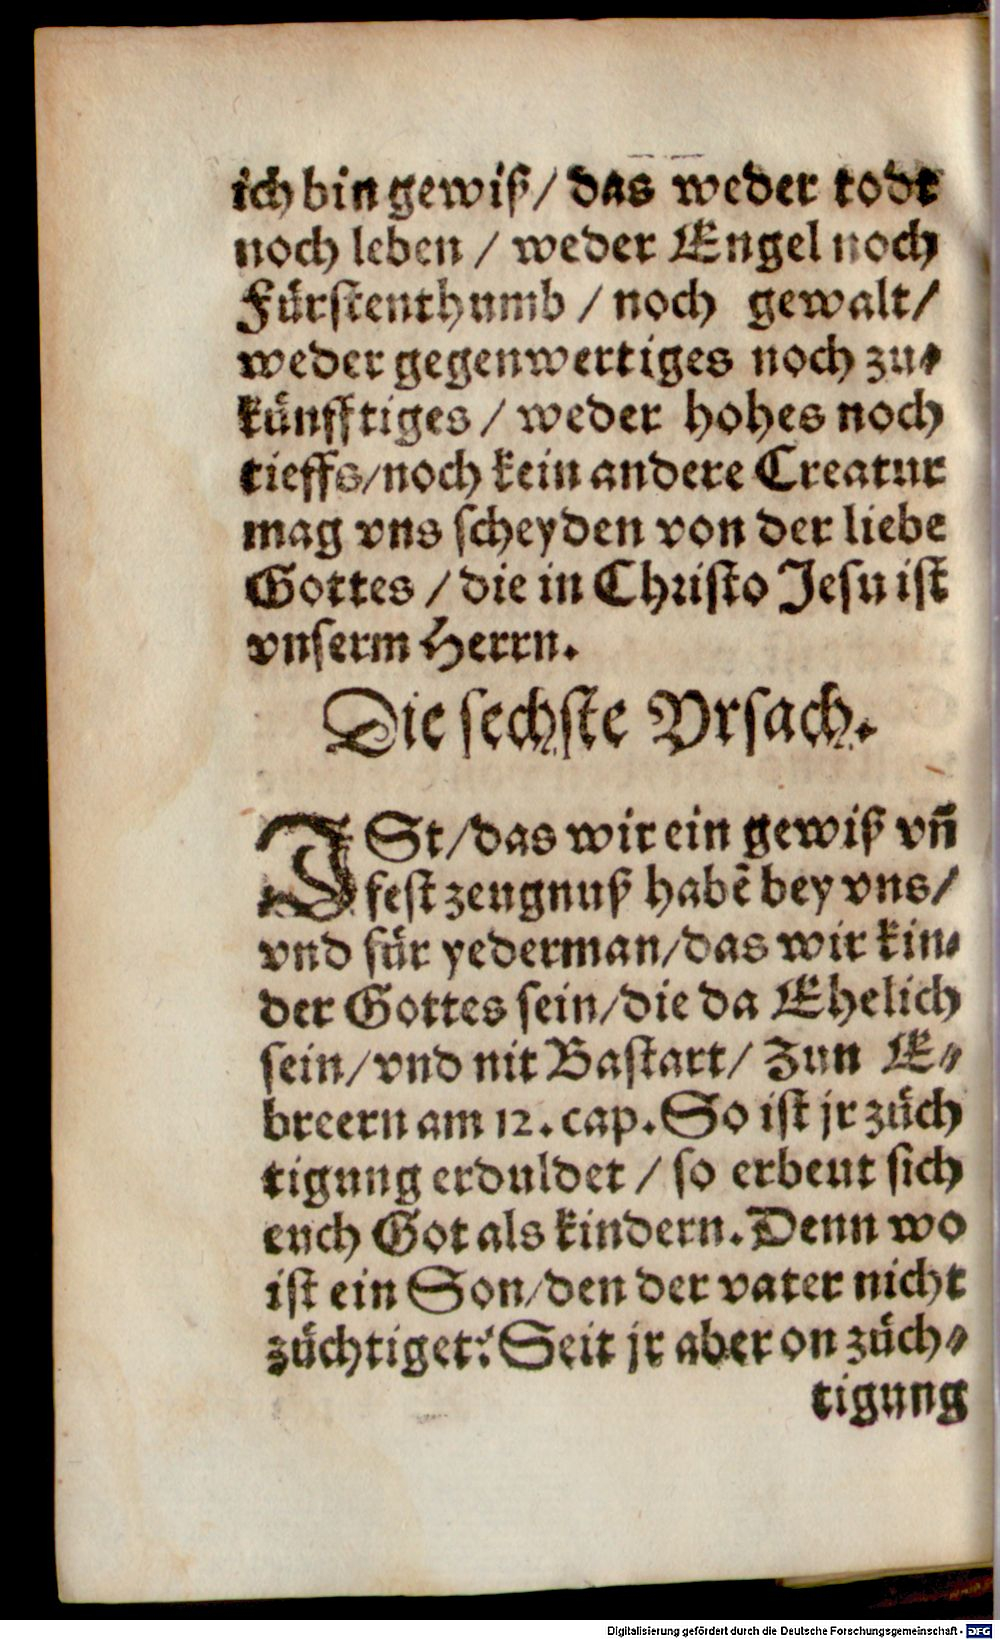 ich bin gewiß/ das weder todt
noch leben / weder Engel noch
Fürstenthumb / noch gewalt/
weder gegenwertiges noch zu⸗
künfftiges / weder hohes noch
tieffs/noch kein andere Creatur
mag vns scheyden von der liebe
Gottes / die in Christo Jesu ist
vnserm Herrn.
Die sechste Vrsach.
JSt/das wir ein gewiß vn̄
fest zeugnuß habē bey vns/
vnd für yederman/das wir kin⸗
der Gottes sein/die da Ehelich
sein/vnd nit Bastart/ Zun E⸗
breern am 12. cap. So ist jr züch
tigung erduldet / so erbeut sich
euch Got als kindern. Denn wo
ist ein Son/den der vater nicht
züchtiget? Seit jr aber on züch⸗
tigung
Digitalisierung gefördert durch die Deutsche Forschungsgemeinschaft - DFG